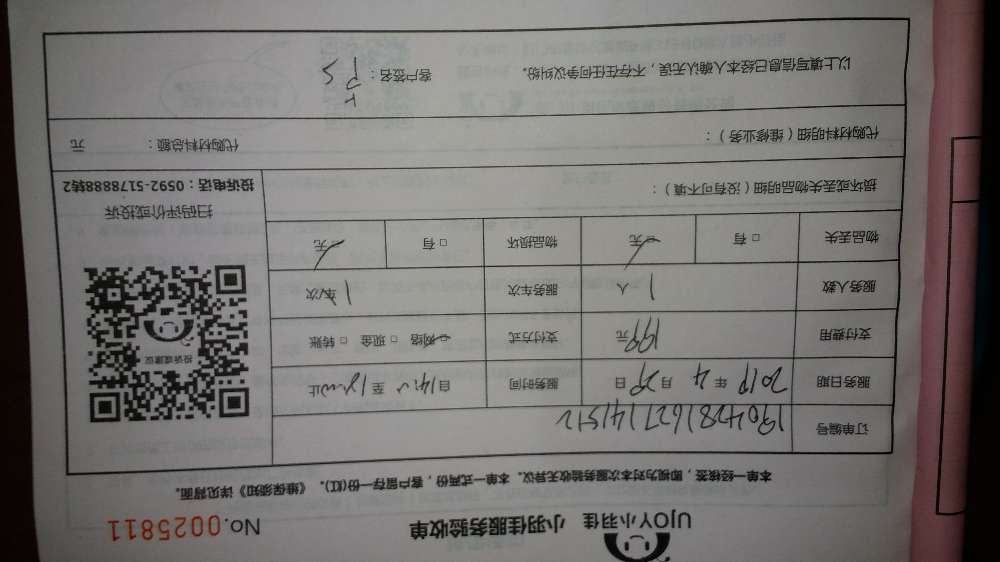 UJOY小羽佳 小羽佳服务验收单 No.0025811
本单一经核签，即视为对本次服务验收无异议。本单一式两份，客户留存一份(红)。《维保须知》详见背面。
订单编号 1904281627141512
服务日期 2019 年 4 月 29 日 服务时间 自 至 止
支付费用 199元 支付方式 网络 □ 现金 □ 转账
服务人数 1 人 服务车次 1 车次
物品丢失 □ 有 □ 无 物品损坏 □ 有 □ 无
投诉或建议
扫码评价或投诉
投诉电话：0592-5178888转2
损坏或丢失物品明细（没有可不填）：
代购材料明细（维修业务）： 代购材料总额： 元
以上填写信息已经本人确认无误，不存在任何争议纠纷。 客户签名：